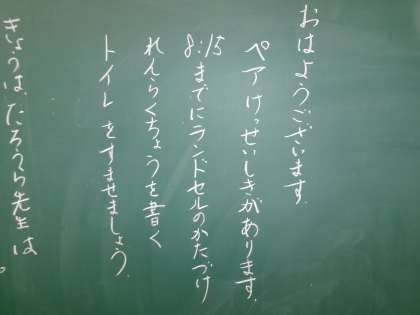 おはようございます。
ペアけっせいしきがあります。
8:15までにランドセルのかたづけ
れんらくちょうを書く
トイレをすませましょう。
きょうは、たろうら先生は